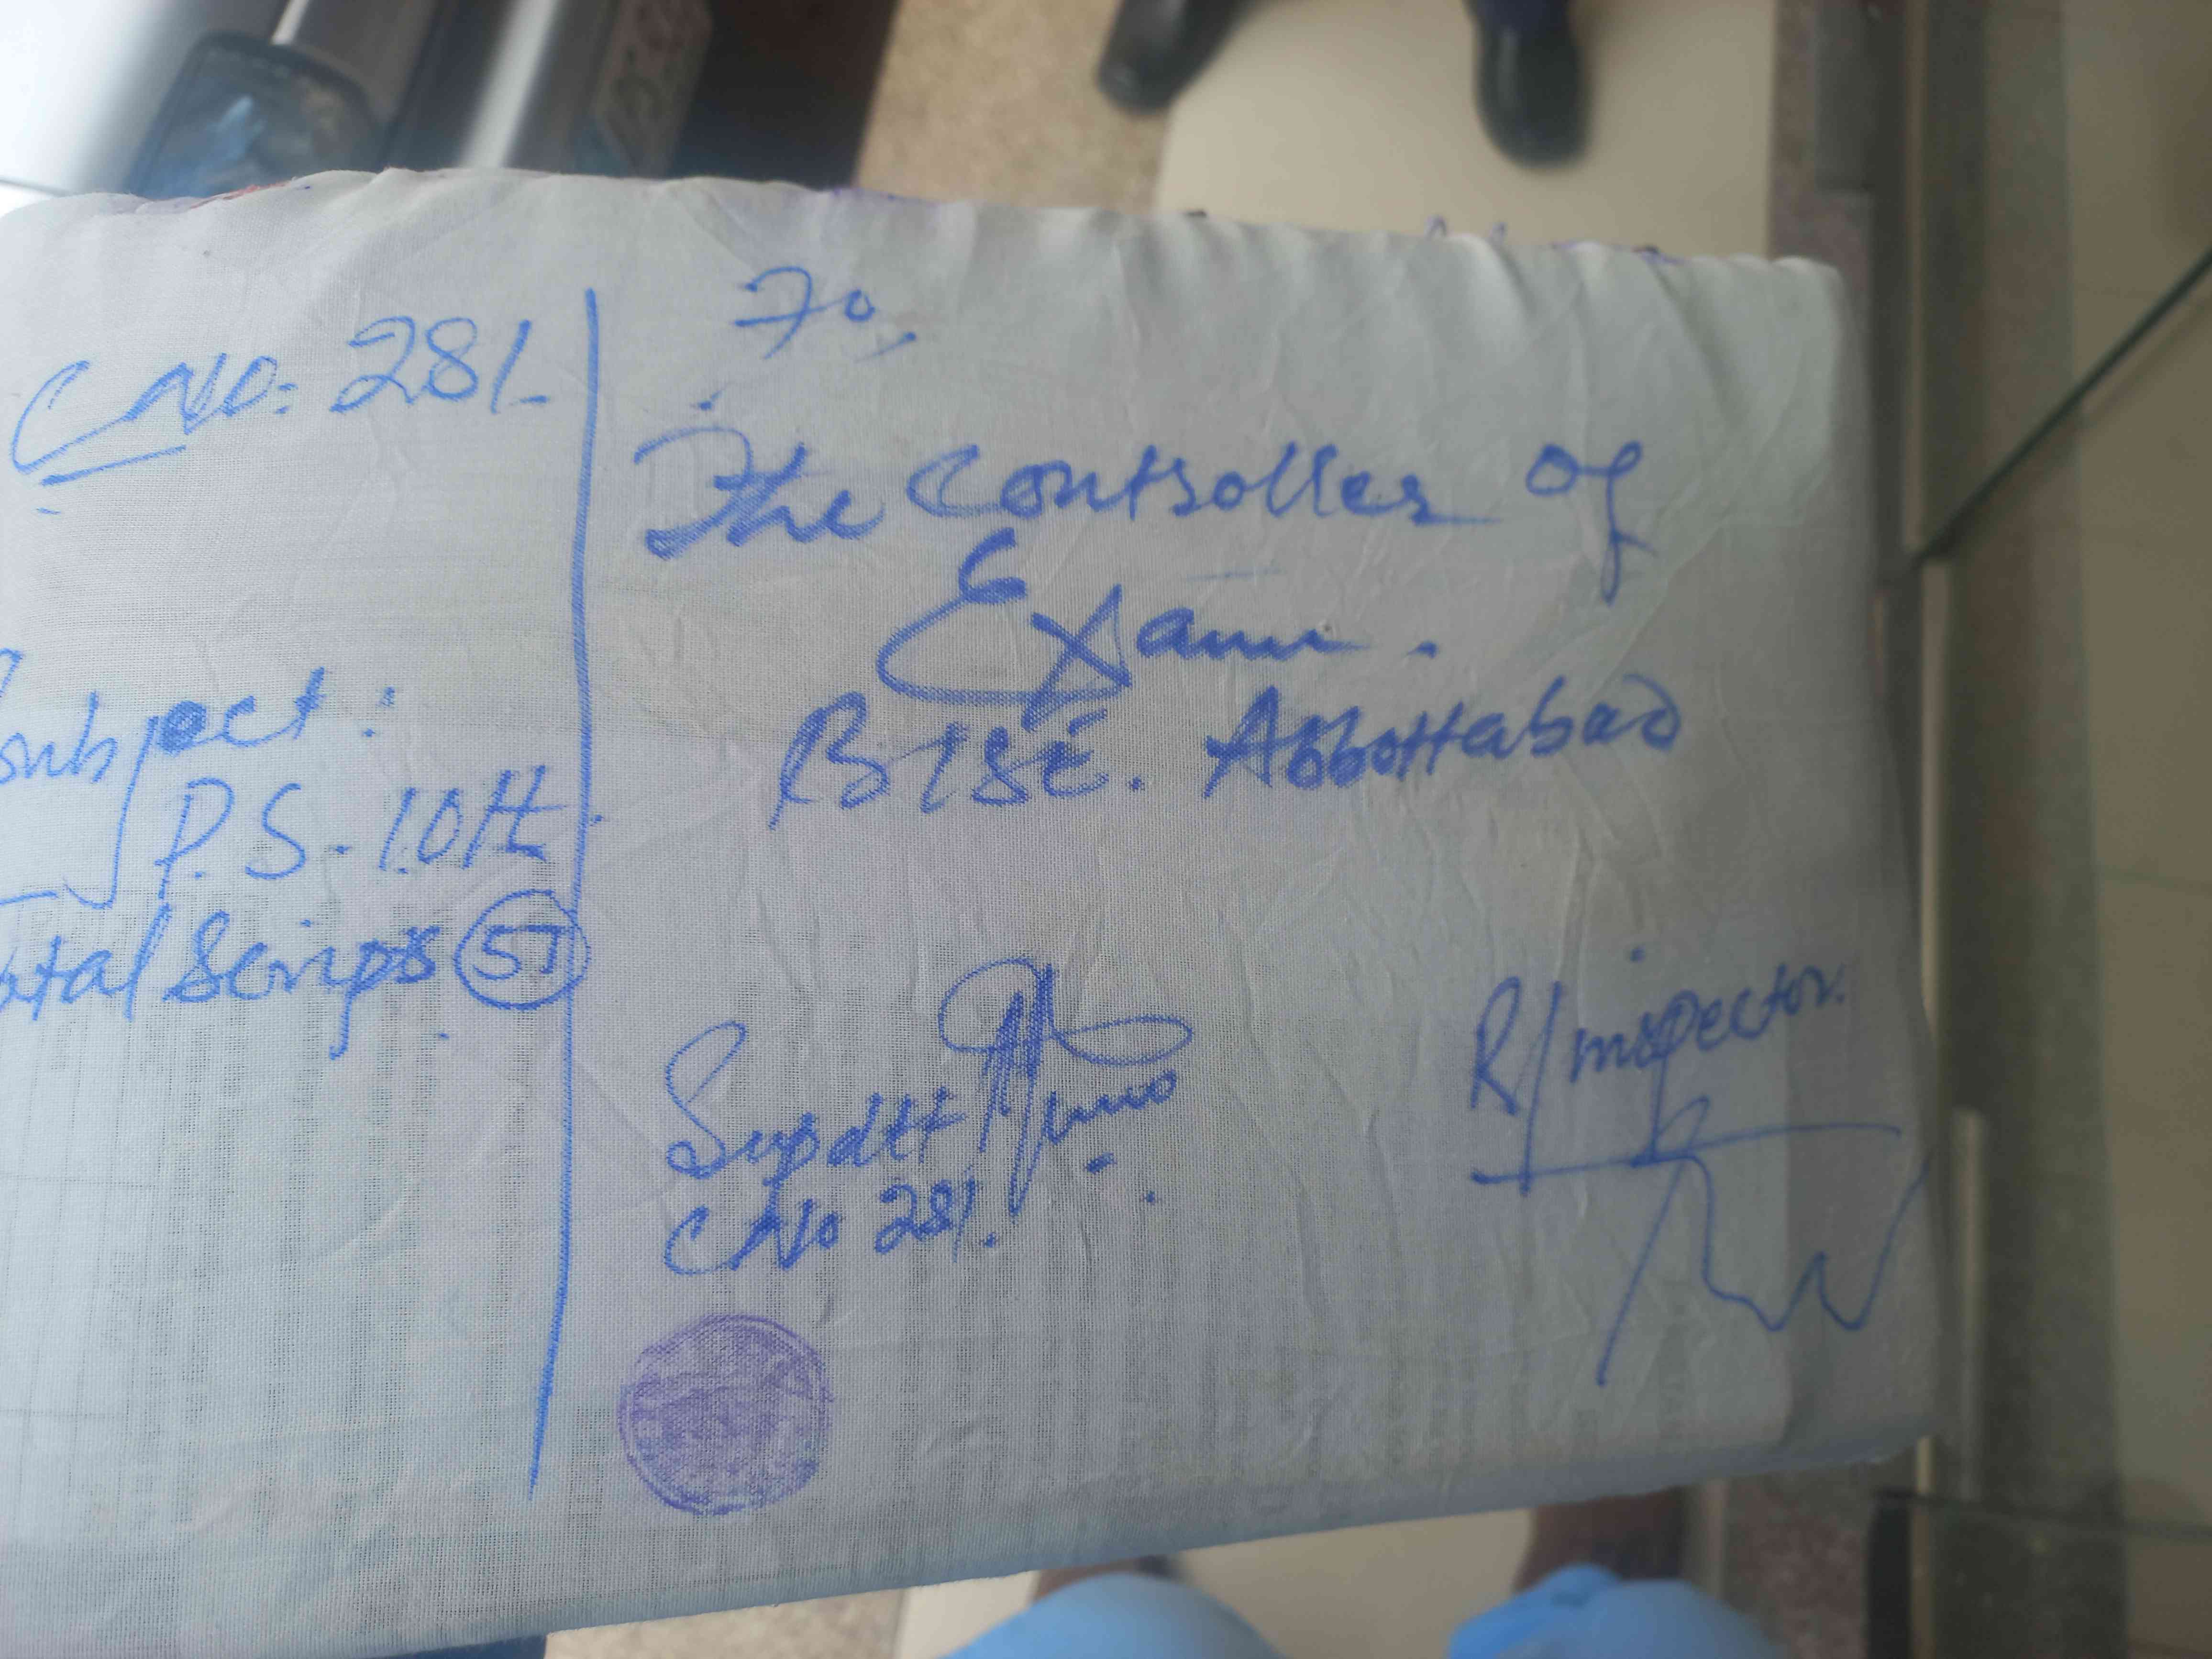 C No: 281
Subject:
P.S. 10th
Total Scrips 57
To,
The Controller of
Exam.
BISE. Abbottabad
Supdtt
C No 281.
R/Inspector.